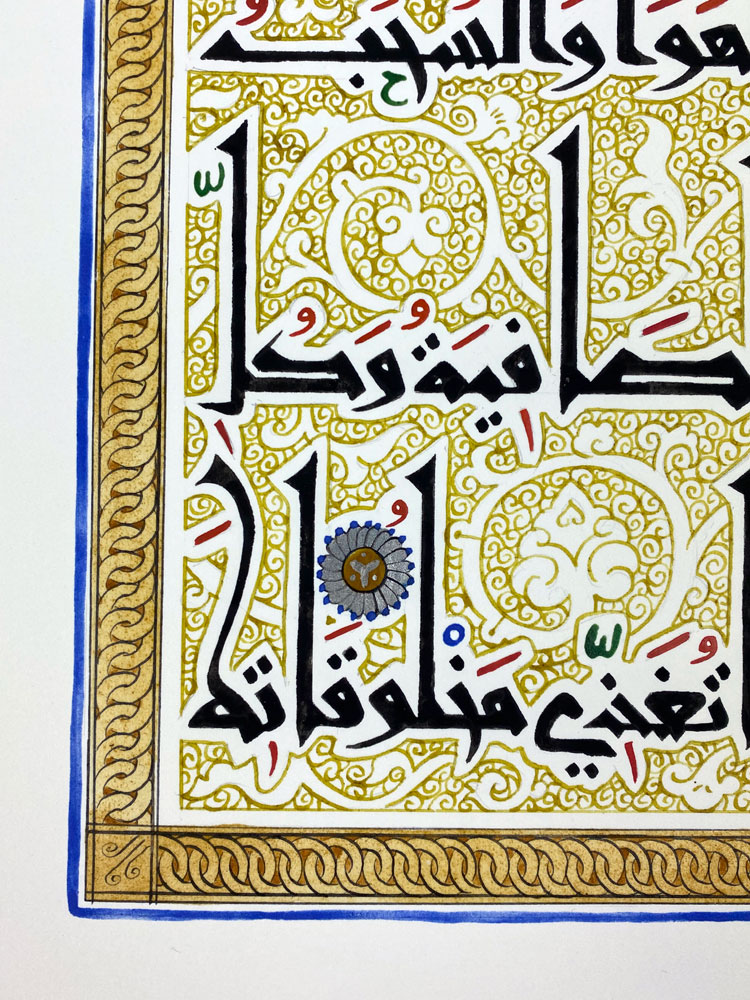 هَوَا وَالسُّحُبُ
صَافِيَةُ وَكُلِّ
تُغَذِّي مَخْلُوقَاتِهِ